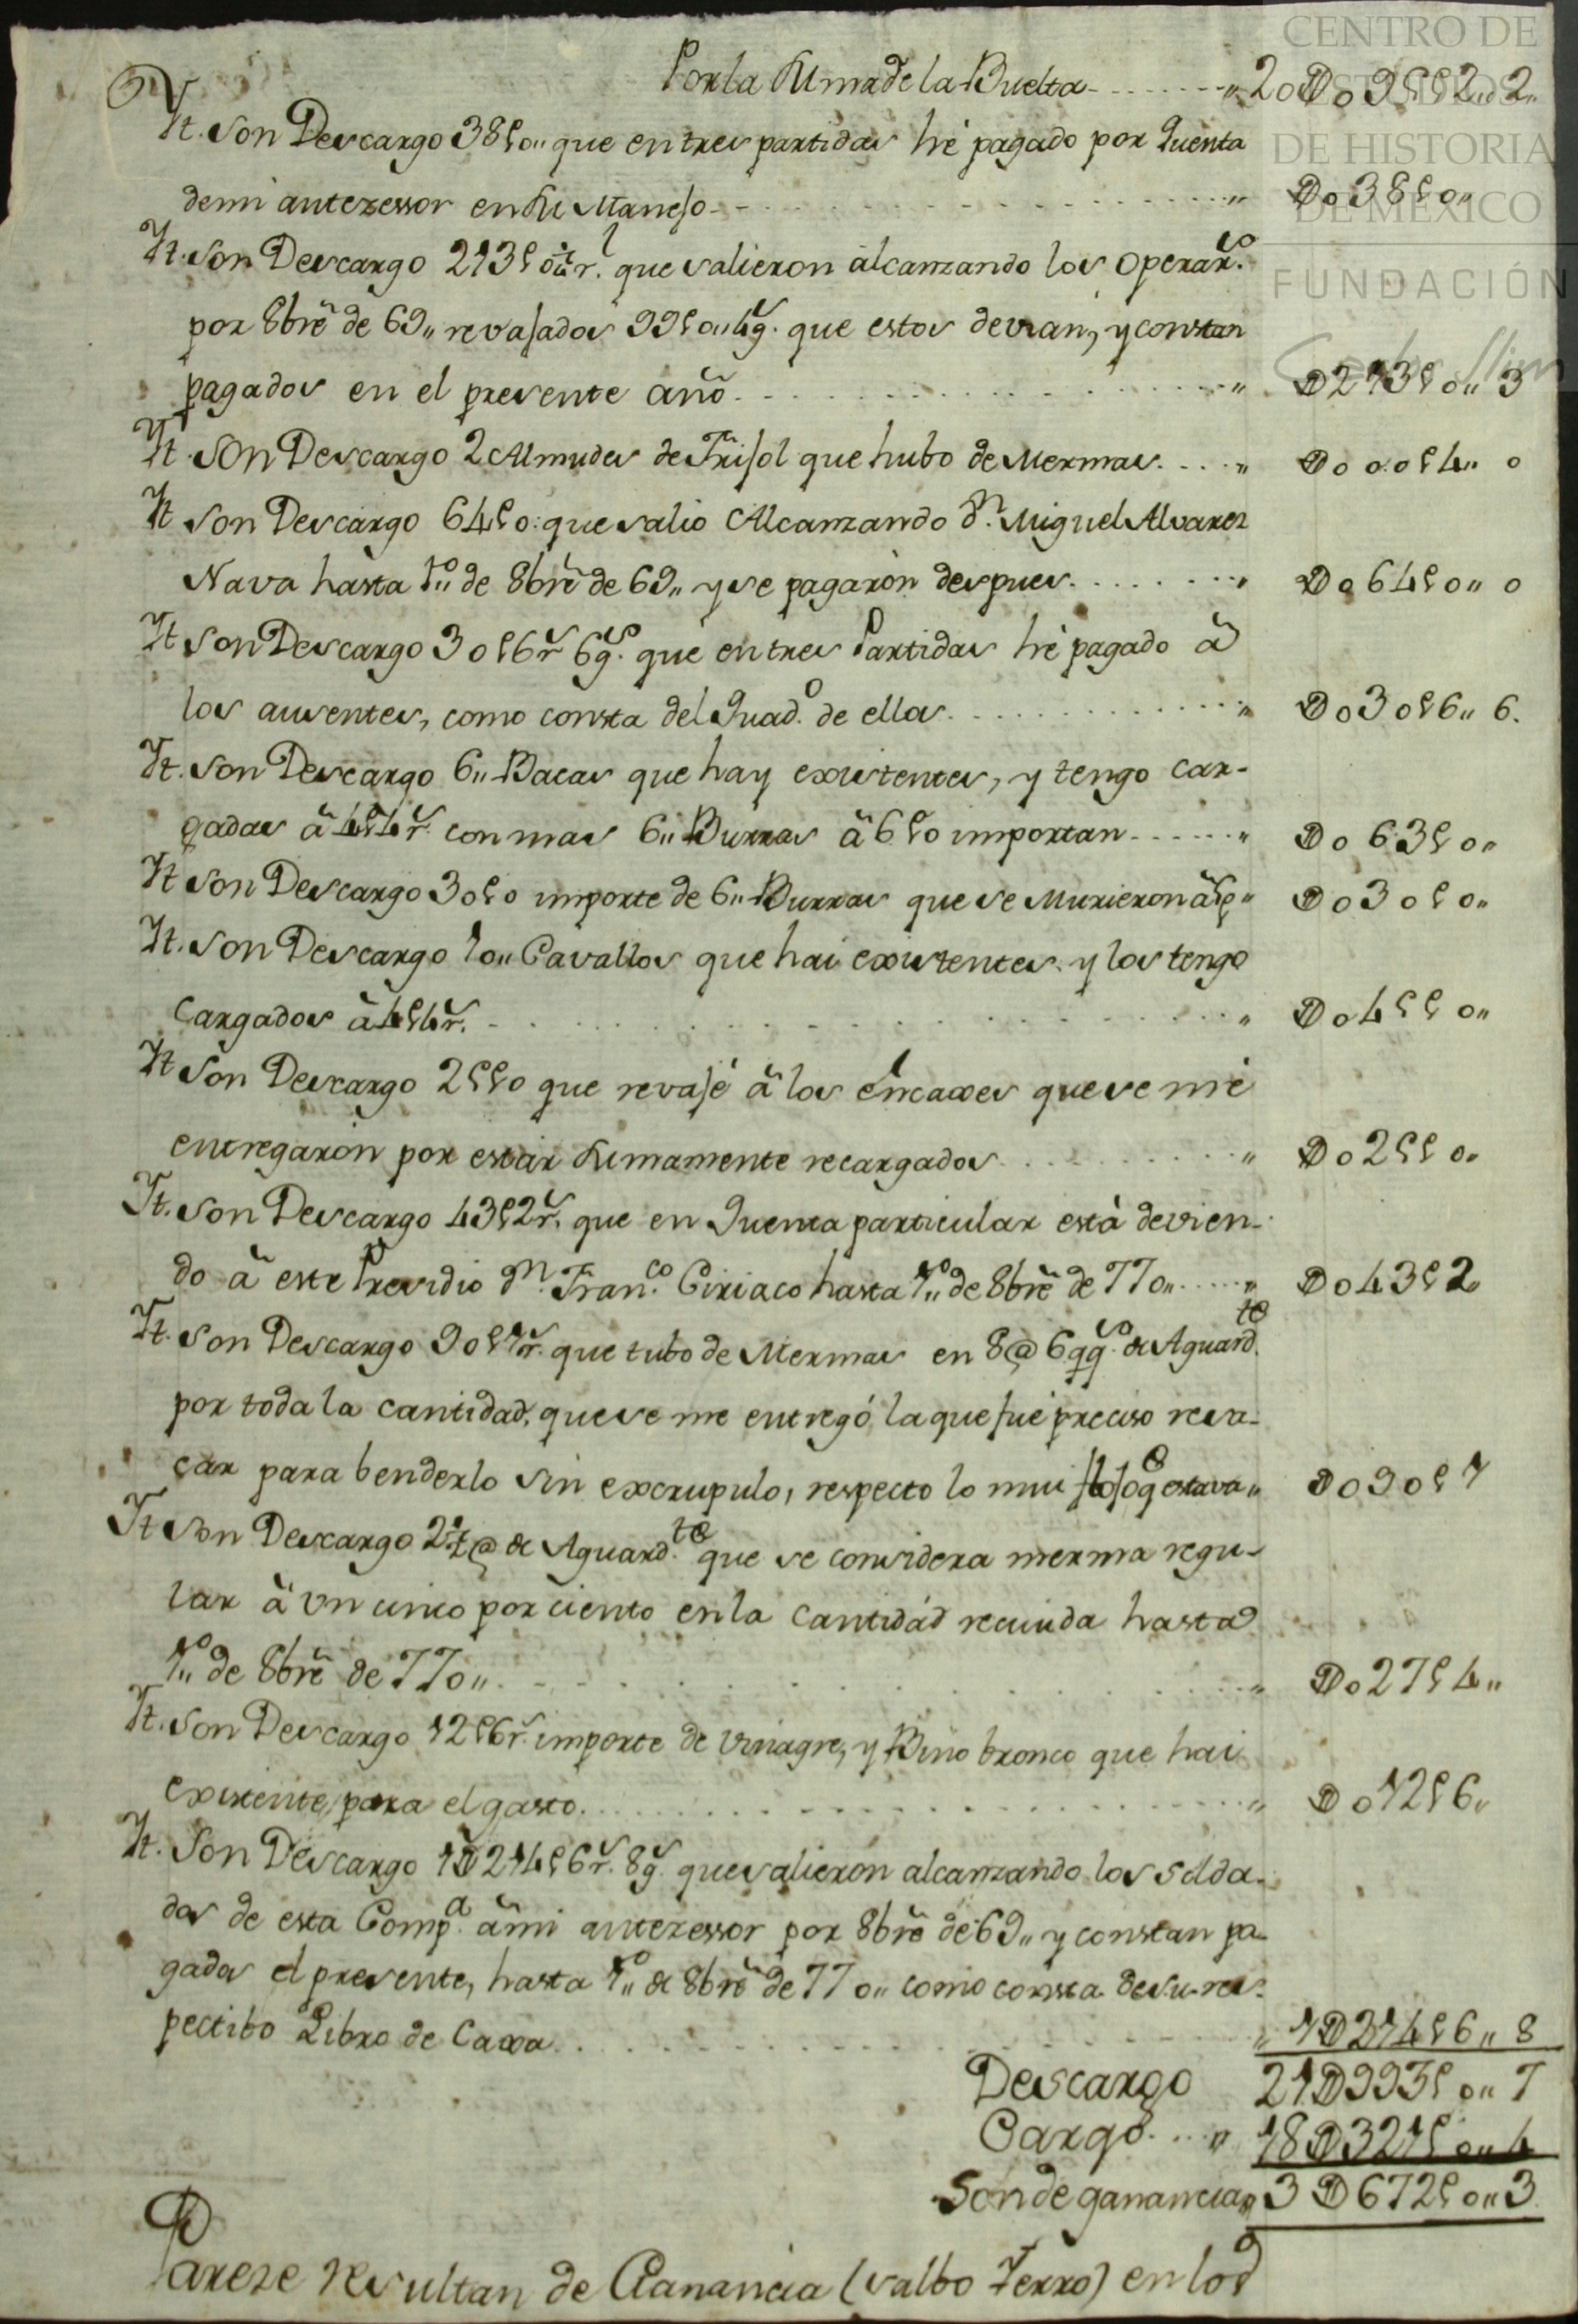 CENTRO DE
ESTUDIOS
DE HISTORIA
DE MÉXICO
FUNDACIÓN
Carlos Slim
Por la suma de la Buelta " 20D0955 2" 2"
Yt. Son Descargo 38ps 0" que en tres partidas hé pagado por Quenta
de mi antezessor en su Manejo " D038ps 0"
Yt. Son Descargo 213ps 0¼ rl. que salieron alcanzando los Operars.
por 8bre de 69" revajados 99ps 0" 4gs. que estos devian, y constan
pagados en el presente año " D213ps 0" 3
Yt. Son Descargo 2 Almudes de Frijol que hubo de Mermas " D000ps 4" 0
Yt Son Descargo 64ps 0: que salio Alcanzando Dn. Miguel Alvarez
Nava hasta 1o" de 8bre de 69" y se pagaron despues " D064ps 0" 0
Yt Son Descargo 30ps 6rs 6gs. que en tres Partidas hé pagado â
los ausentes, como consta del Quado. de ellos " D030ps 6" 6.
Yt. Son Descargo 6" Bacas que hay existentes, y tengo car-
gadas â 4ps 4rs. con mas 6" Burras â 6ps 0 importan " D063ps 0"
Yt Son Descargo 30ps 0 importe de 6" Burras que se Murieron â 5p" D030ps 0"
Yt. Son Descargo 10" Cavallos que hai existentes y los tengo
Cargados â 4ps 4rs. " D045ps 0"
Yt Son Descargo 25ps 0 que revajé â los encaxes que se me
entregaron por estar sumamente recargados " D025ps 0"
Yt. Son Descargo 43ps 2rs. que en Quenta particular está devien-
do â este Presidio Dn. Franco. Ciriaco hasta 1o" de 8bre de 770" " D043ps 2"
Yt. Son Descargo 90ps 1r. que tubo de Mermas en 8@ 6qqs. de Aguardte.
por toda la cantidad, que se me entregó, la que fue preciso reva-
çar para benderlo sin excrupulo, respecto lo mui flojo qe estava " D090ps 1
Yt Son Descargo 2½@ de Aguardte. que se considera merma regu-
lar â un cinco por ciento en la Cantidad reciuida hasta
1o" de 8bre de 770" " D027ps 4"
Yt. Son Descargo 12ps 6rs. importe de vinagre, y Bino bronco que hai
existente, para el gasto " D012ps 6"
Yt. Son Descargo 1D214ps 6rs. 8gs. que salieron alcanzando los solda-
dos de esta Compa. â mi antezessor por 8bre de 69" y constan pa-
gados el presente, hasta 1o" de 8bre de 770" como consta de su res-
pectibo Libro de Caxa " 1D214ps 6" 8
Descargo 21D993ps 0" 7
Cargo " 18D321ps 0" 4
Son de ganancia " 3D672ps 0" 3
Pareze resultan de Ganancia (salbo Yerro) en los